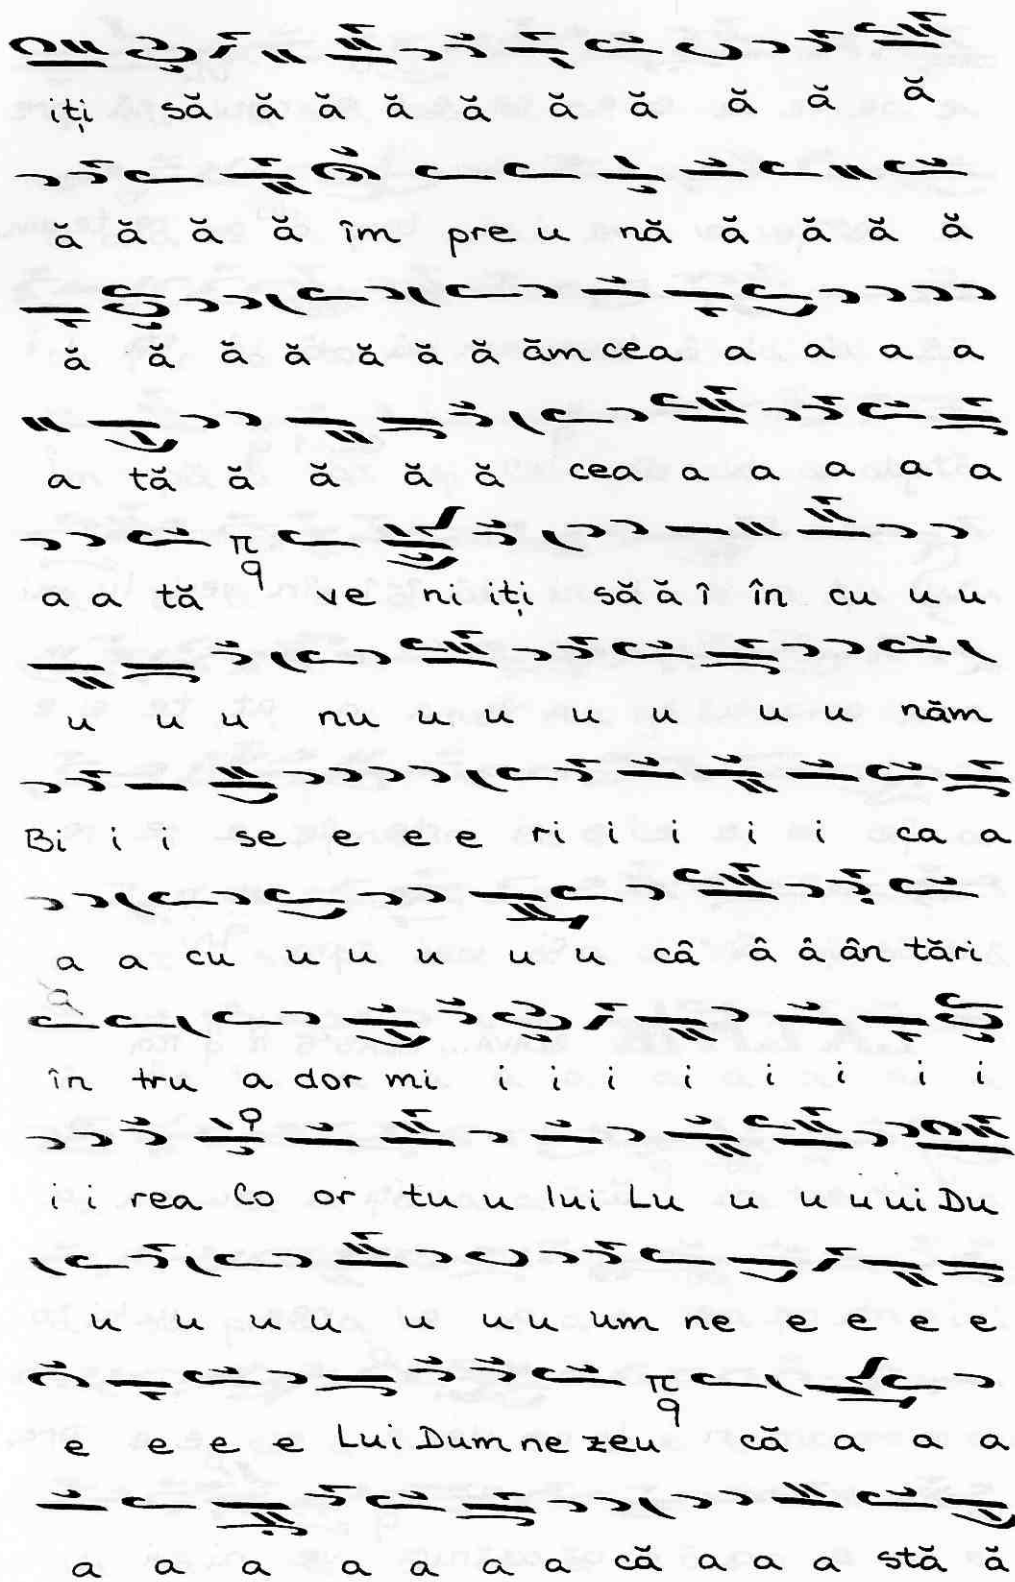 iți să ă ă ă ă ă ă ă ă ă
ă ă ă ă îm pre u nă ă ă ă ă
ă ă ă ă ă ă ă ăm cea a a a a
a tă ă ă ă ă cea a a a a a
a a tă π q ve ni iți să ă î în cu u u
u u u nu u u u u u u năm
Bi i i se e e e ri i i i i ca a
a a cu u u u u u câ â â ân tări
în tru a dor mi i i i i i i i i
i i rea Co or tu u lui Lu u u u ui Du
u u u u u u u um ne e e e e
e e e e Lui Dum ne zeu π q că a a a
a a a a a a a că a a a stă ă